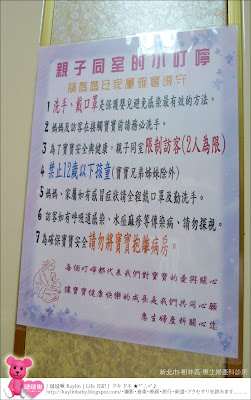 親子同室的小叮嚀
請媽媽爸爸家屬確實遵守
1 洗手、戴口罩是保護嬰兒避免感染最有效的方法。
2 媽媽及訪客在接觸寶寶前請務必洗手。
3 為了寶寶安全與健康，親子同室限制訪客(2人為限)
4 禁止12歲以下孩童(寶寶兄弟姊妹除外)
5 媽媽、家屬如有感冒症狀請全程戴口罩及勤洗手。
6 訪客如有呼吸道感染、水痘麻疹等傳染病，請勿探視。
7 為確保寶寶安全請勿將寶寶抱離病房。
每個叮嚀都代表我們對寶寶的愛與關心
讓寶寶健康快樂的成長是我們共同心願
惠生婦產科關心您
新北市‧樹林區‧惠生婦產科診所
http://kaylinbaby.blogspot.com/